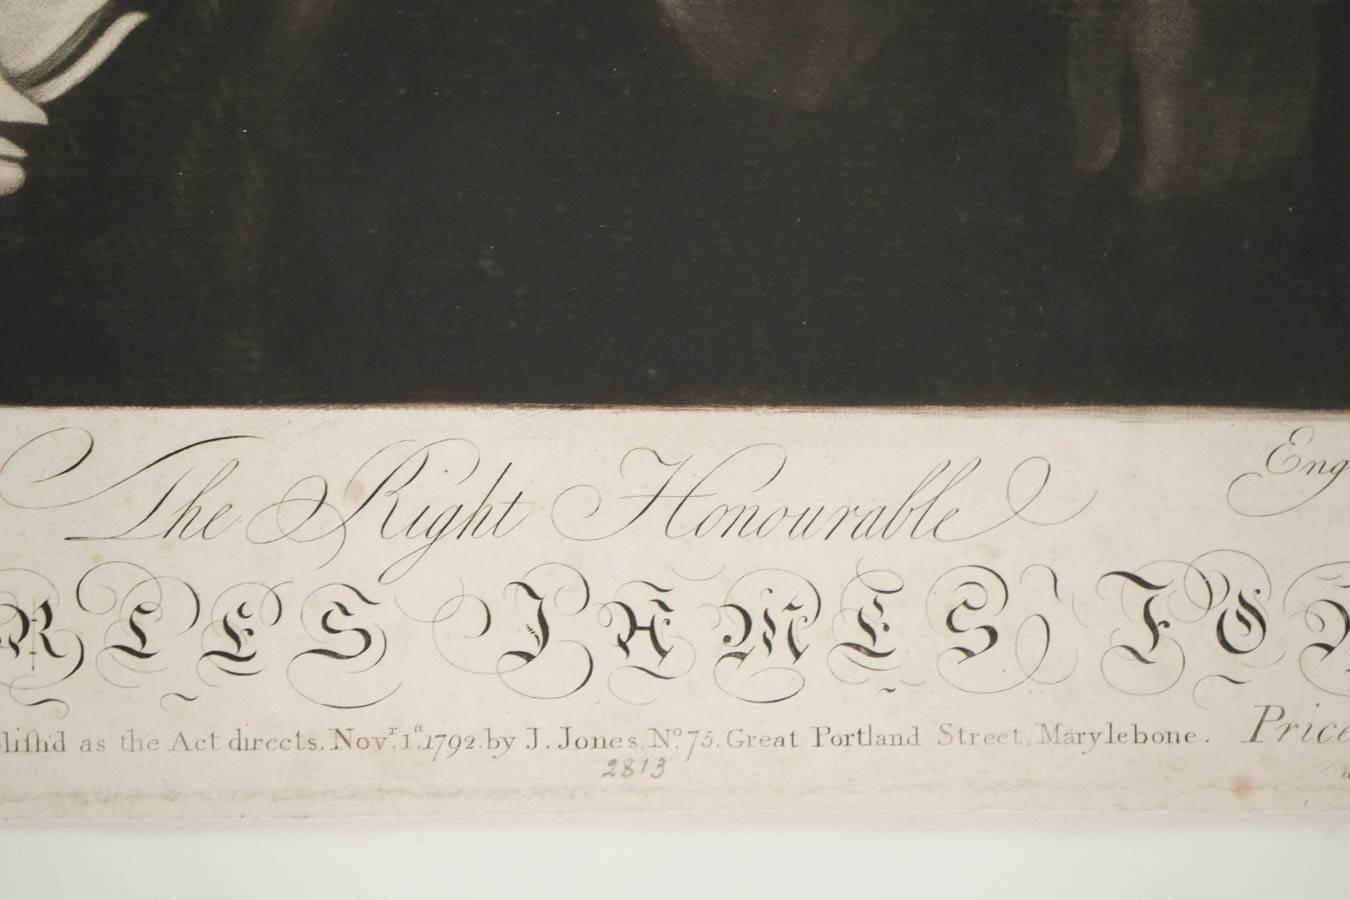 The Right Honourable
Eng
RLES JAMES FO
lish'd as the Act directs. Novr. 1st 1792. by J. Jones, No. 75. Great Portland Street, Marylebone. Price
2813